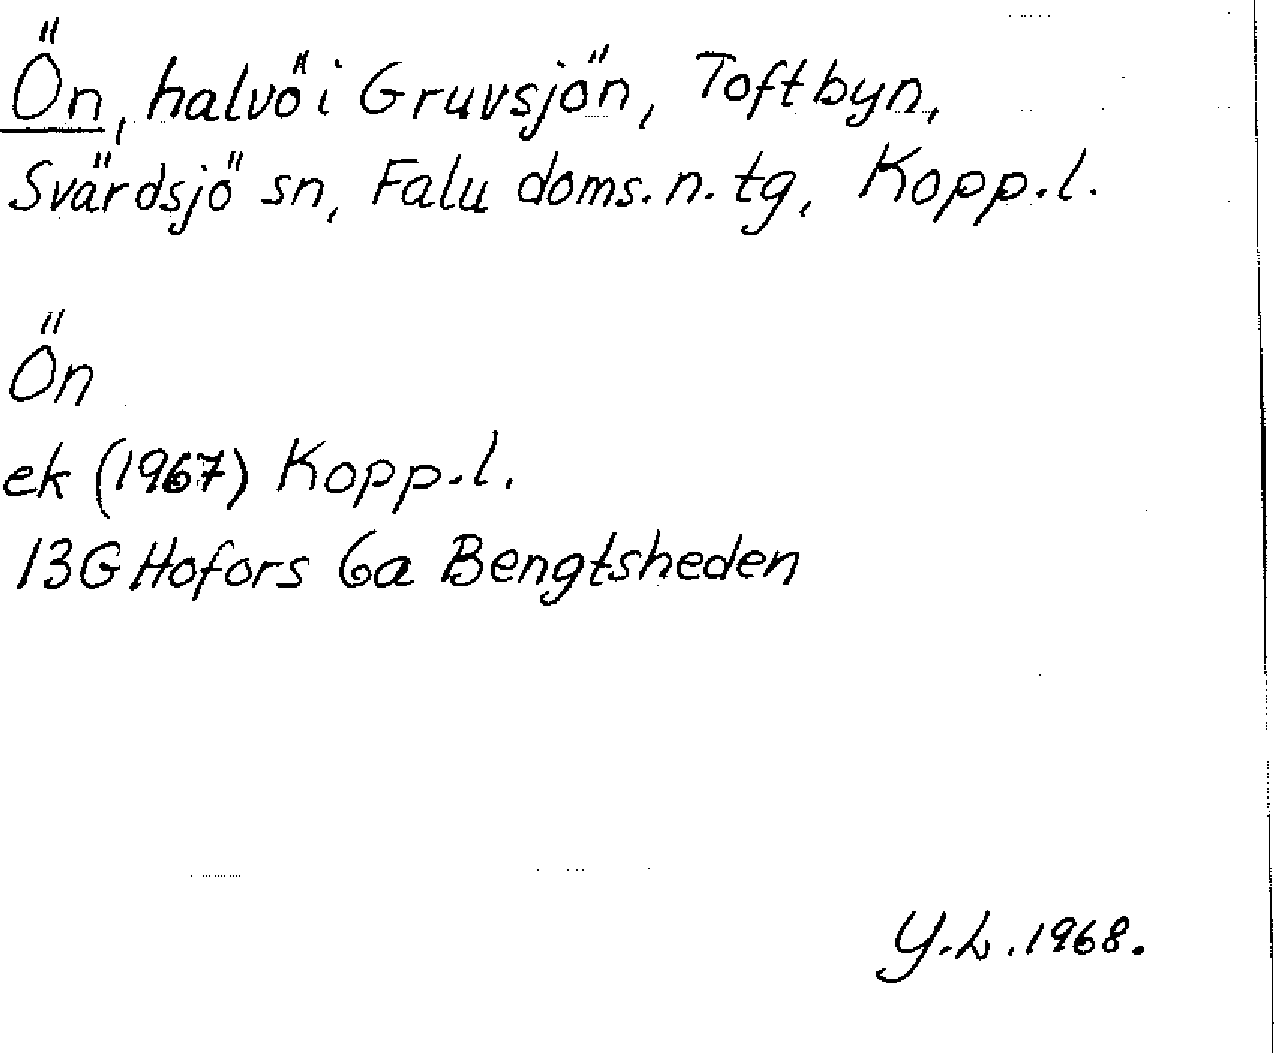 Ön, halvö i Gruvsjön, Toftbyn,
Svärdsjö sn, Falu doms. n. tg, Kopp.l.
Ön
ek (1967) Kopp.l.
13G Hofors 6a Bengtsheden
Y.L. 1968.